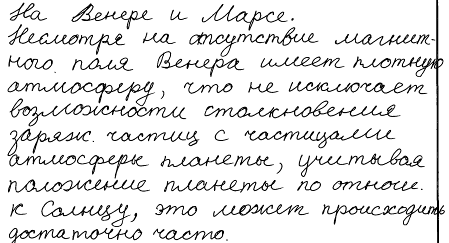 На Венере и Марсе.
Несмотря на отсутствие магнит-
ного поля Венера имеет плотную
атмосферу, что не исключает
возможности столкновения
заряж. частиц с частицами
атмосферы планеты, учитывая
положение планеты по отнош.
к Солнцу, это может происходить
достаточно часто.